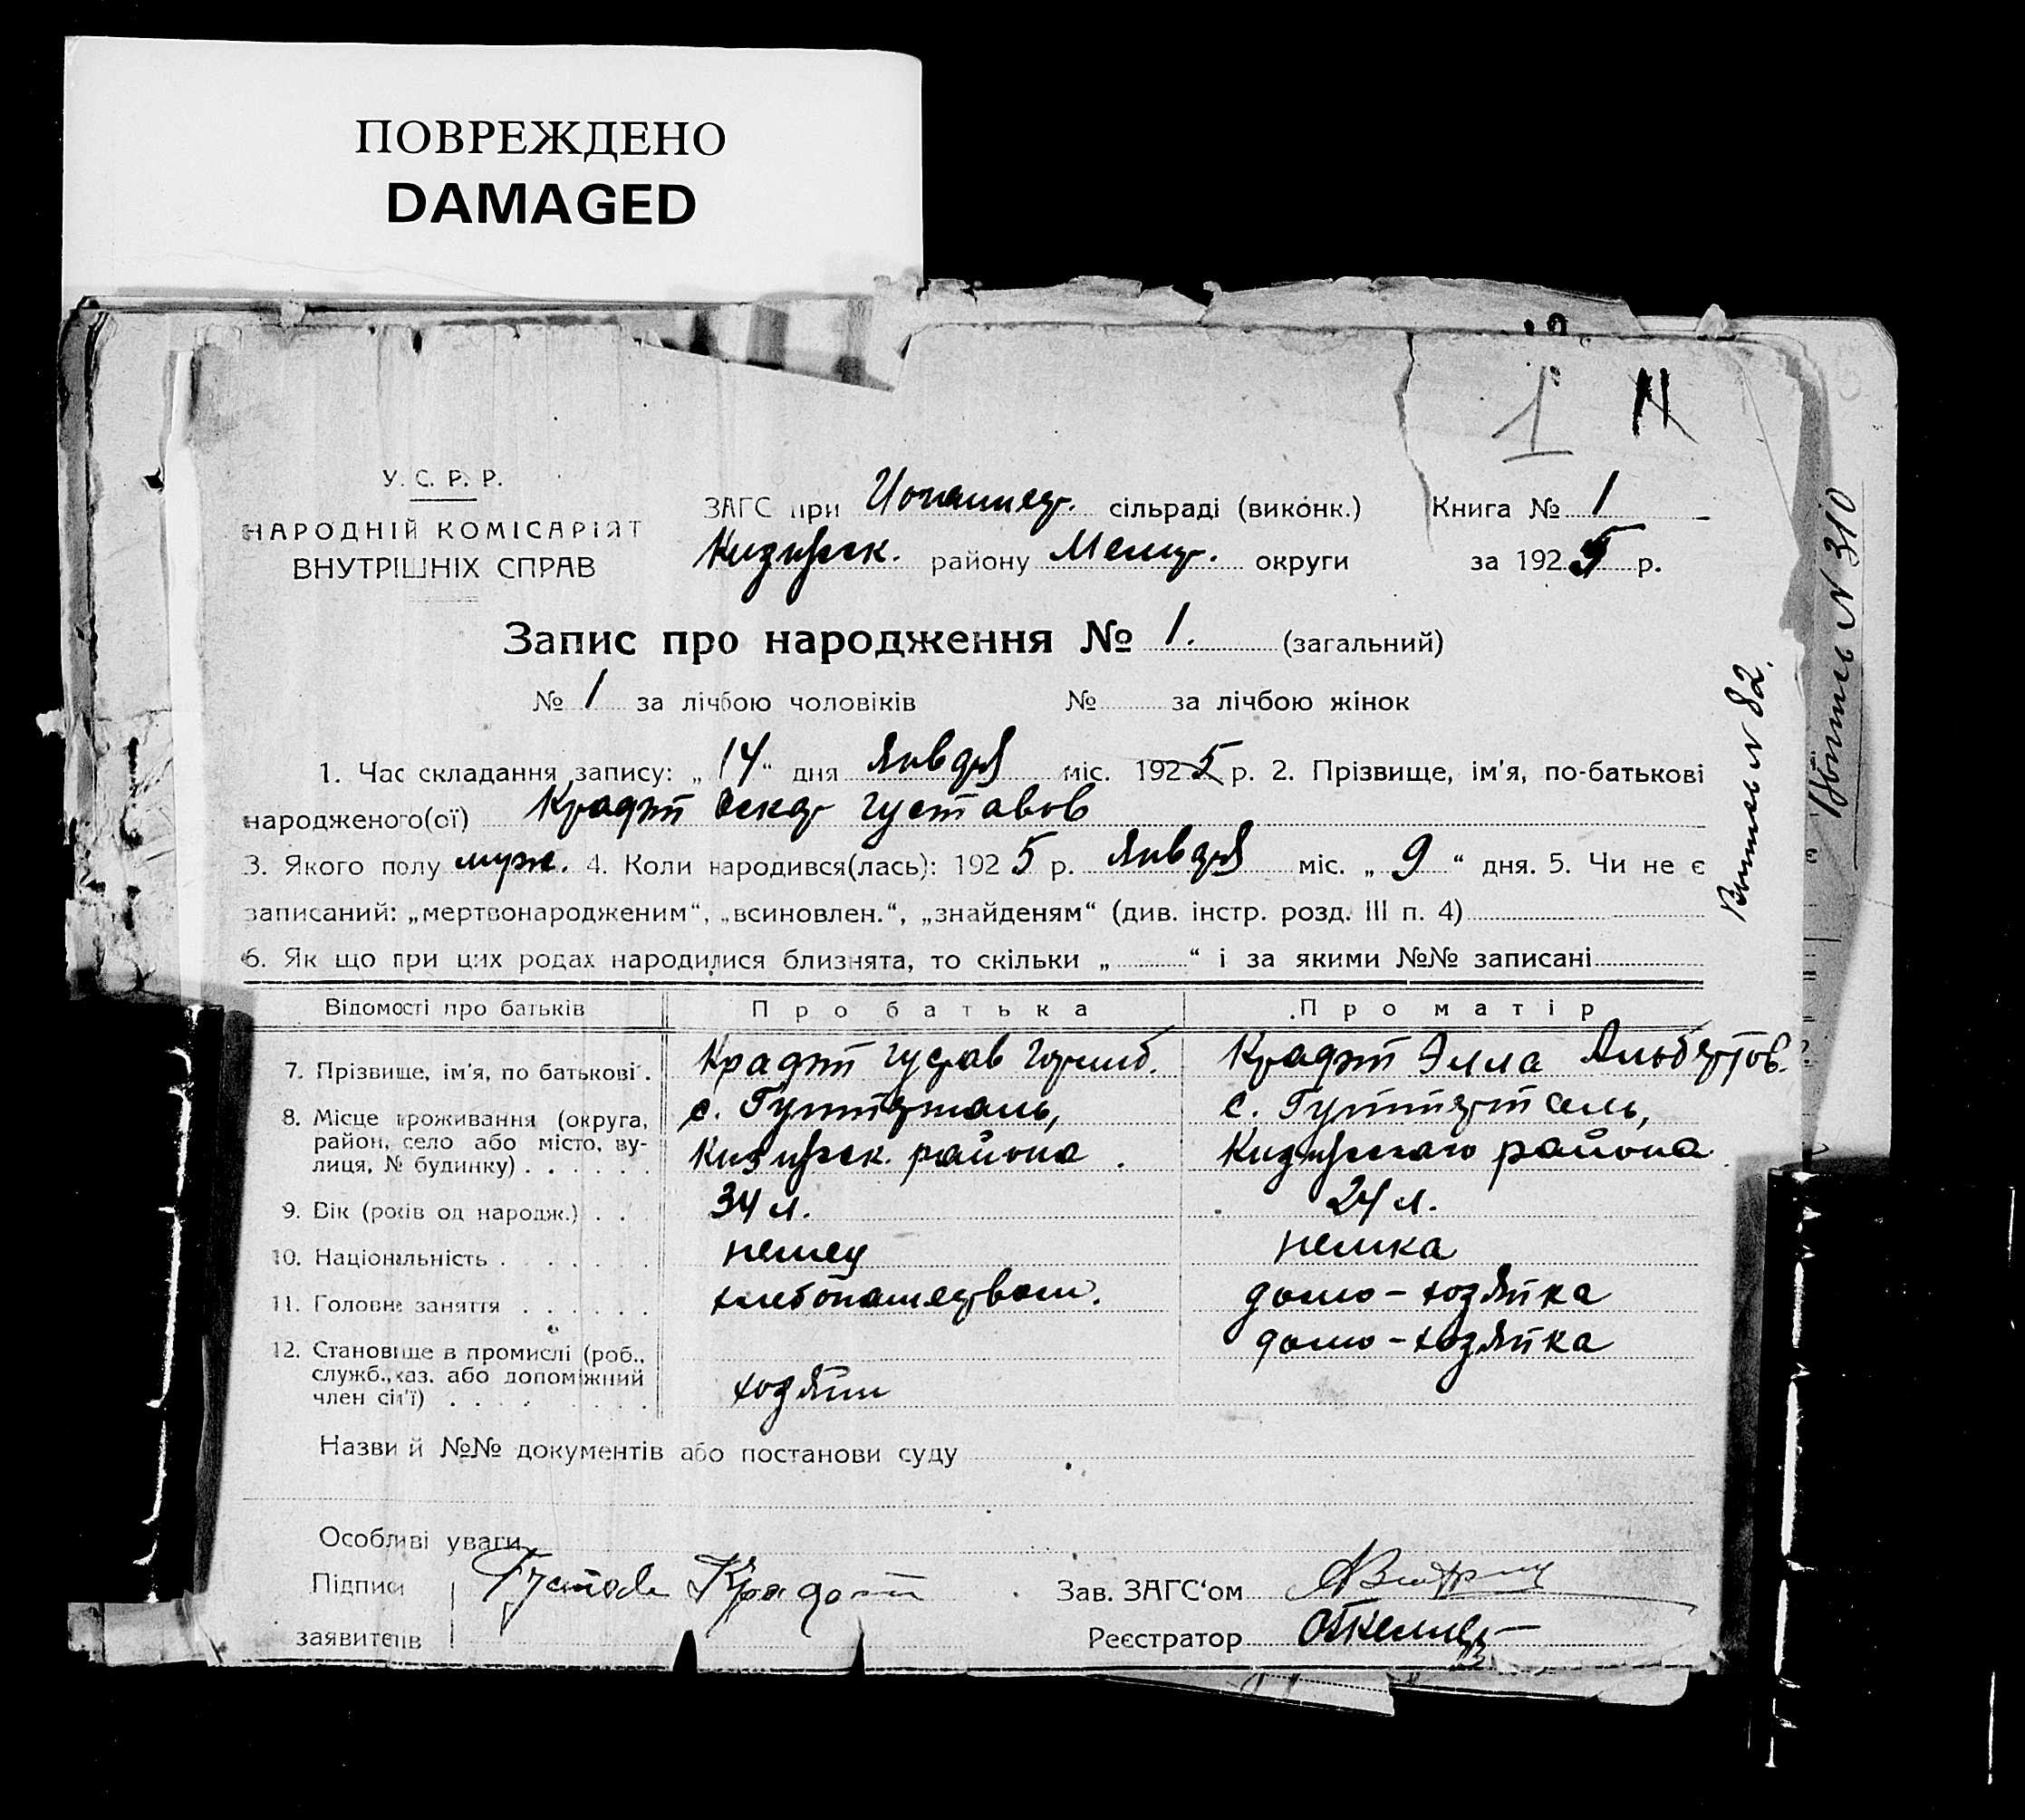 ПОВРЕЖДЕНО
DAMAGED
1
У. С. Р. Р.
НАРОДНІЙ КОМІСАРІЯТ
ВНУТРІШНІХ СПРАВ
ЗАГС при сільраді (виконк.) Книга № 1
району округи за 1925 р.
Запис про народження № 1. (загальний)
№ 1 за лічбою чоловіків № за лічбою жінок
1. Час складання запису: „14“ дня января міс. 1925 р. 2. Прізвище, ім'я, по-батькові
народженого(ої) Крафт Оскар Густавов
3. Якого полу муж. 4. Коли народився(лась): 1925 р. января міс. „9“ дня. 5. Чи не є
записаний: „мертвонародженим“, „всиновлен.“, „знайденям“ (див. інстр. розд. III п. 4)
6. Як що при цих родах народилися близнята, то скільки „ “ і за якими №№ записані
Відомості про батьків Про батька Про матір
7. Прізвище, ім'я, по батькові . Крафт Густав Крафт Элла Альбертов.
8. Місце проживання (округа, с. Гуттерталь, с. Гуттерталь,
район, село або місто, ву-
лиця, № будинку) . . . . . . района района
9. Вік (років од народж.) . . 34 л. 24 л.
10. Національність . . . . . . немец немка
11. Головне заняття . . . . . . хлебопашеством. домо-хозяйка
домо-хозяйка
12. Становище в промислі (роб.,
служб., хаз. або допоміжний
член сім'ї) . . . . . . . . хозяин
Назви й №№ документів або постанови суду
Особливі уваги
Підписи Густав Крафт Зав. ЗАГС‘ом
заявителів Реєстратор
Выпись № 82.
Выпись № 310